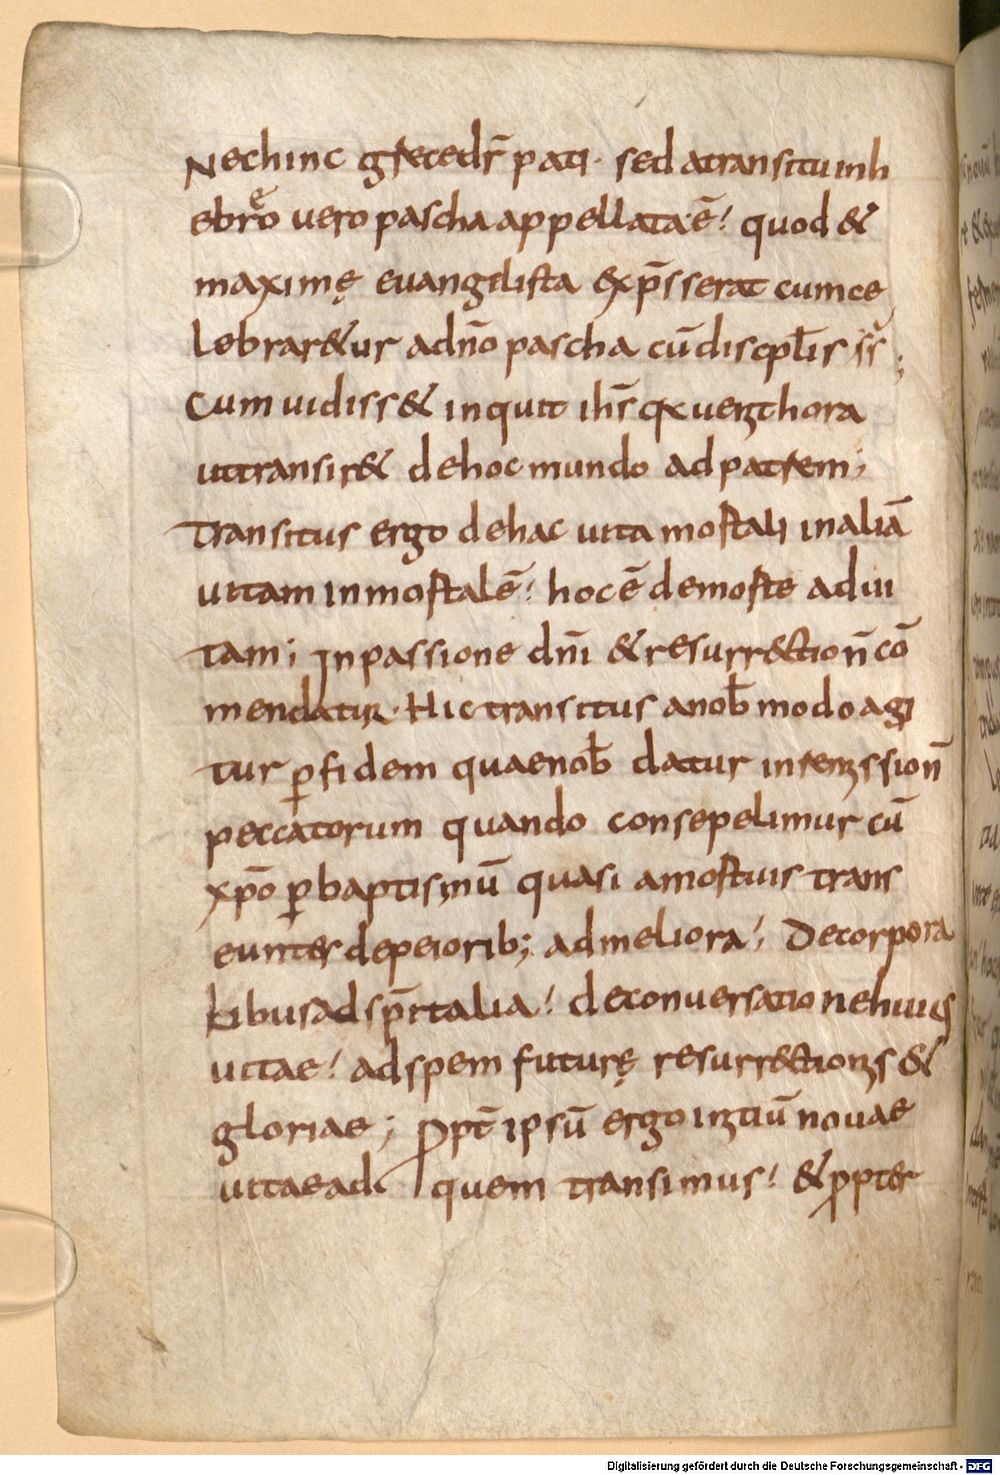 Nec hinc grece dr̄ pati· sed a transitu in h
ebreo vero pascha appellata ē! quod &
maximę euangelista exp̄sserat cum ce
lebrar&ur a dn̄o pascha cū discipl̄is
Cum uidiss& inquit ih̄s quia uenit hora
ut transir& de hoc mundo ad patrem;
Transitus ergo de hac uita mortali in aliā
uitam inmortalē! hoc ē de morte ad ui
tam; in passione dn̄i & resurr&ction̄ cō
mendatur· Hic transitus a nob̄ modo agi
tur ꝑ fidem quae nob̄ datur in remission̄
peccatorum quando consepelimur cū
xp̄o ꝑ baptismū quasi a mortuis trans
euntes de peiorib; ad meliora! De corpora
libus ad sp̄rtalia! de conuersatione huius
uitae! ad spem futurę resurr&ctionis &
gloriae; Propt̄ ipsū ergo initiū nouae
uitae ad quem transimus! & propter
Digitalisierung gefördert durch die Deutsche Forschungsgemeinschaft - DFG